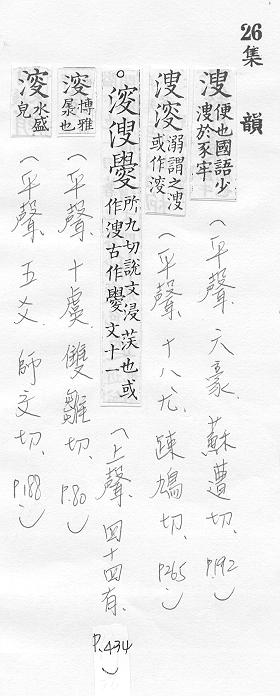 26
集韻
溲 便也國語少
溲於豕牢
(平聲、六豪、蘇遭切、P.192)
溲 溺謂之溲
或作
(平聲、十八尤、疎鳩切、P.265)
。 溲 所九切說文浸 也或
作溲古作 文十一
(上聲、四十四有、P.434)
博雅
也
(平聲、十虞、雙雛切、P.80)
水盛
皃
(平聲、五爻、師交切、P.188)